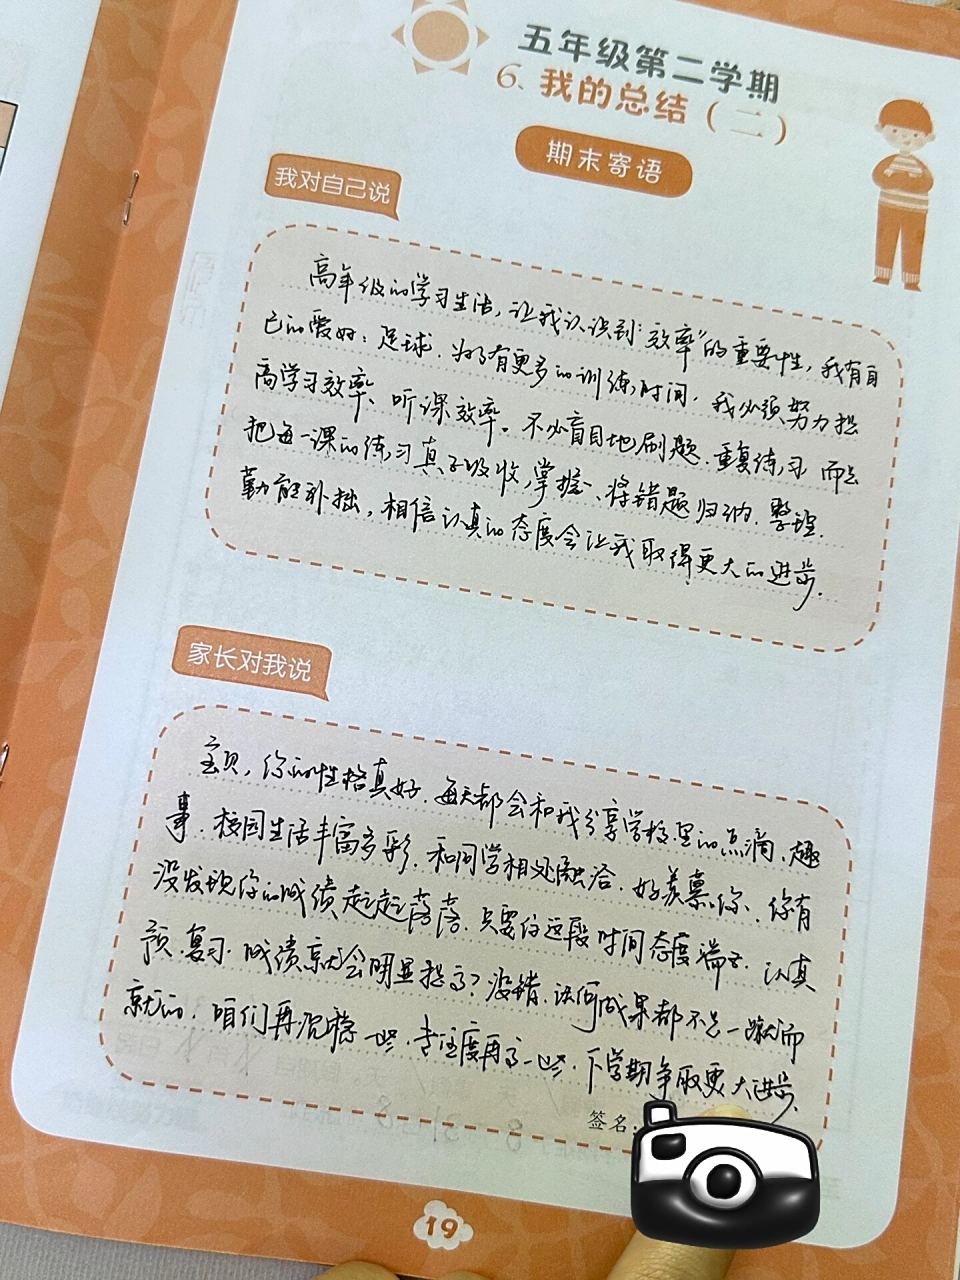 五年级第二学期
6、我的总结（二）
期末寄语
我对自己说
高年级的学习生活，让我认识到“效率”的重要性，我有自
己的爱好：足球．为了有更多的训练时间，我必须努力提
高学习效率、听课效率。不必盲目地刷题．重复练习 而是
把每一课的练习真正吸收，掌握、将错题归纳．整理．
勤能补拙，相信认真的态度会让我取得更大的进步．
家长对我说
宝贝，你的性格真好．每天都会和我分享学校里的点滴，趣
事．校园生活丰富多彩．和同学相处融洽．好羡慕你．你有
没发现你的成绩起起落落．只要你这段时间态度端正．认真
预．复习．成绩就会明显提高？没错．任何成果都不是一蹴而
就的．咱们再沉稳一些．专注度再高一些．下学期争取更大进步．
签名：
19